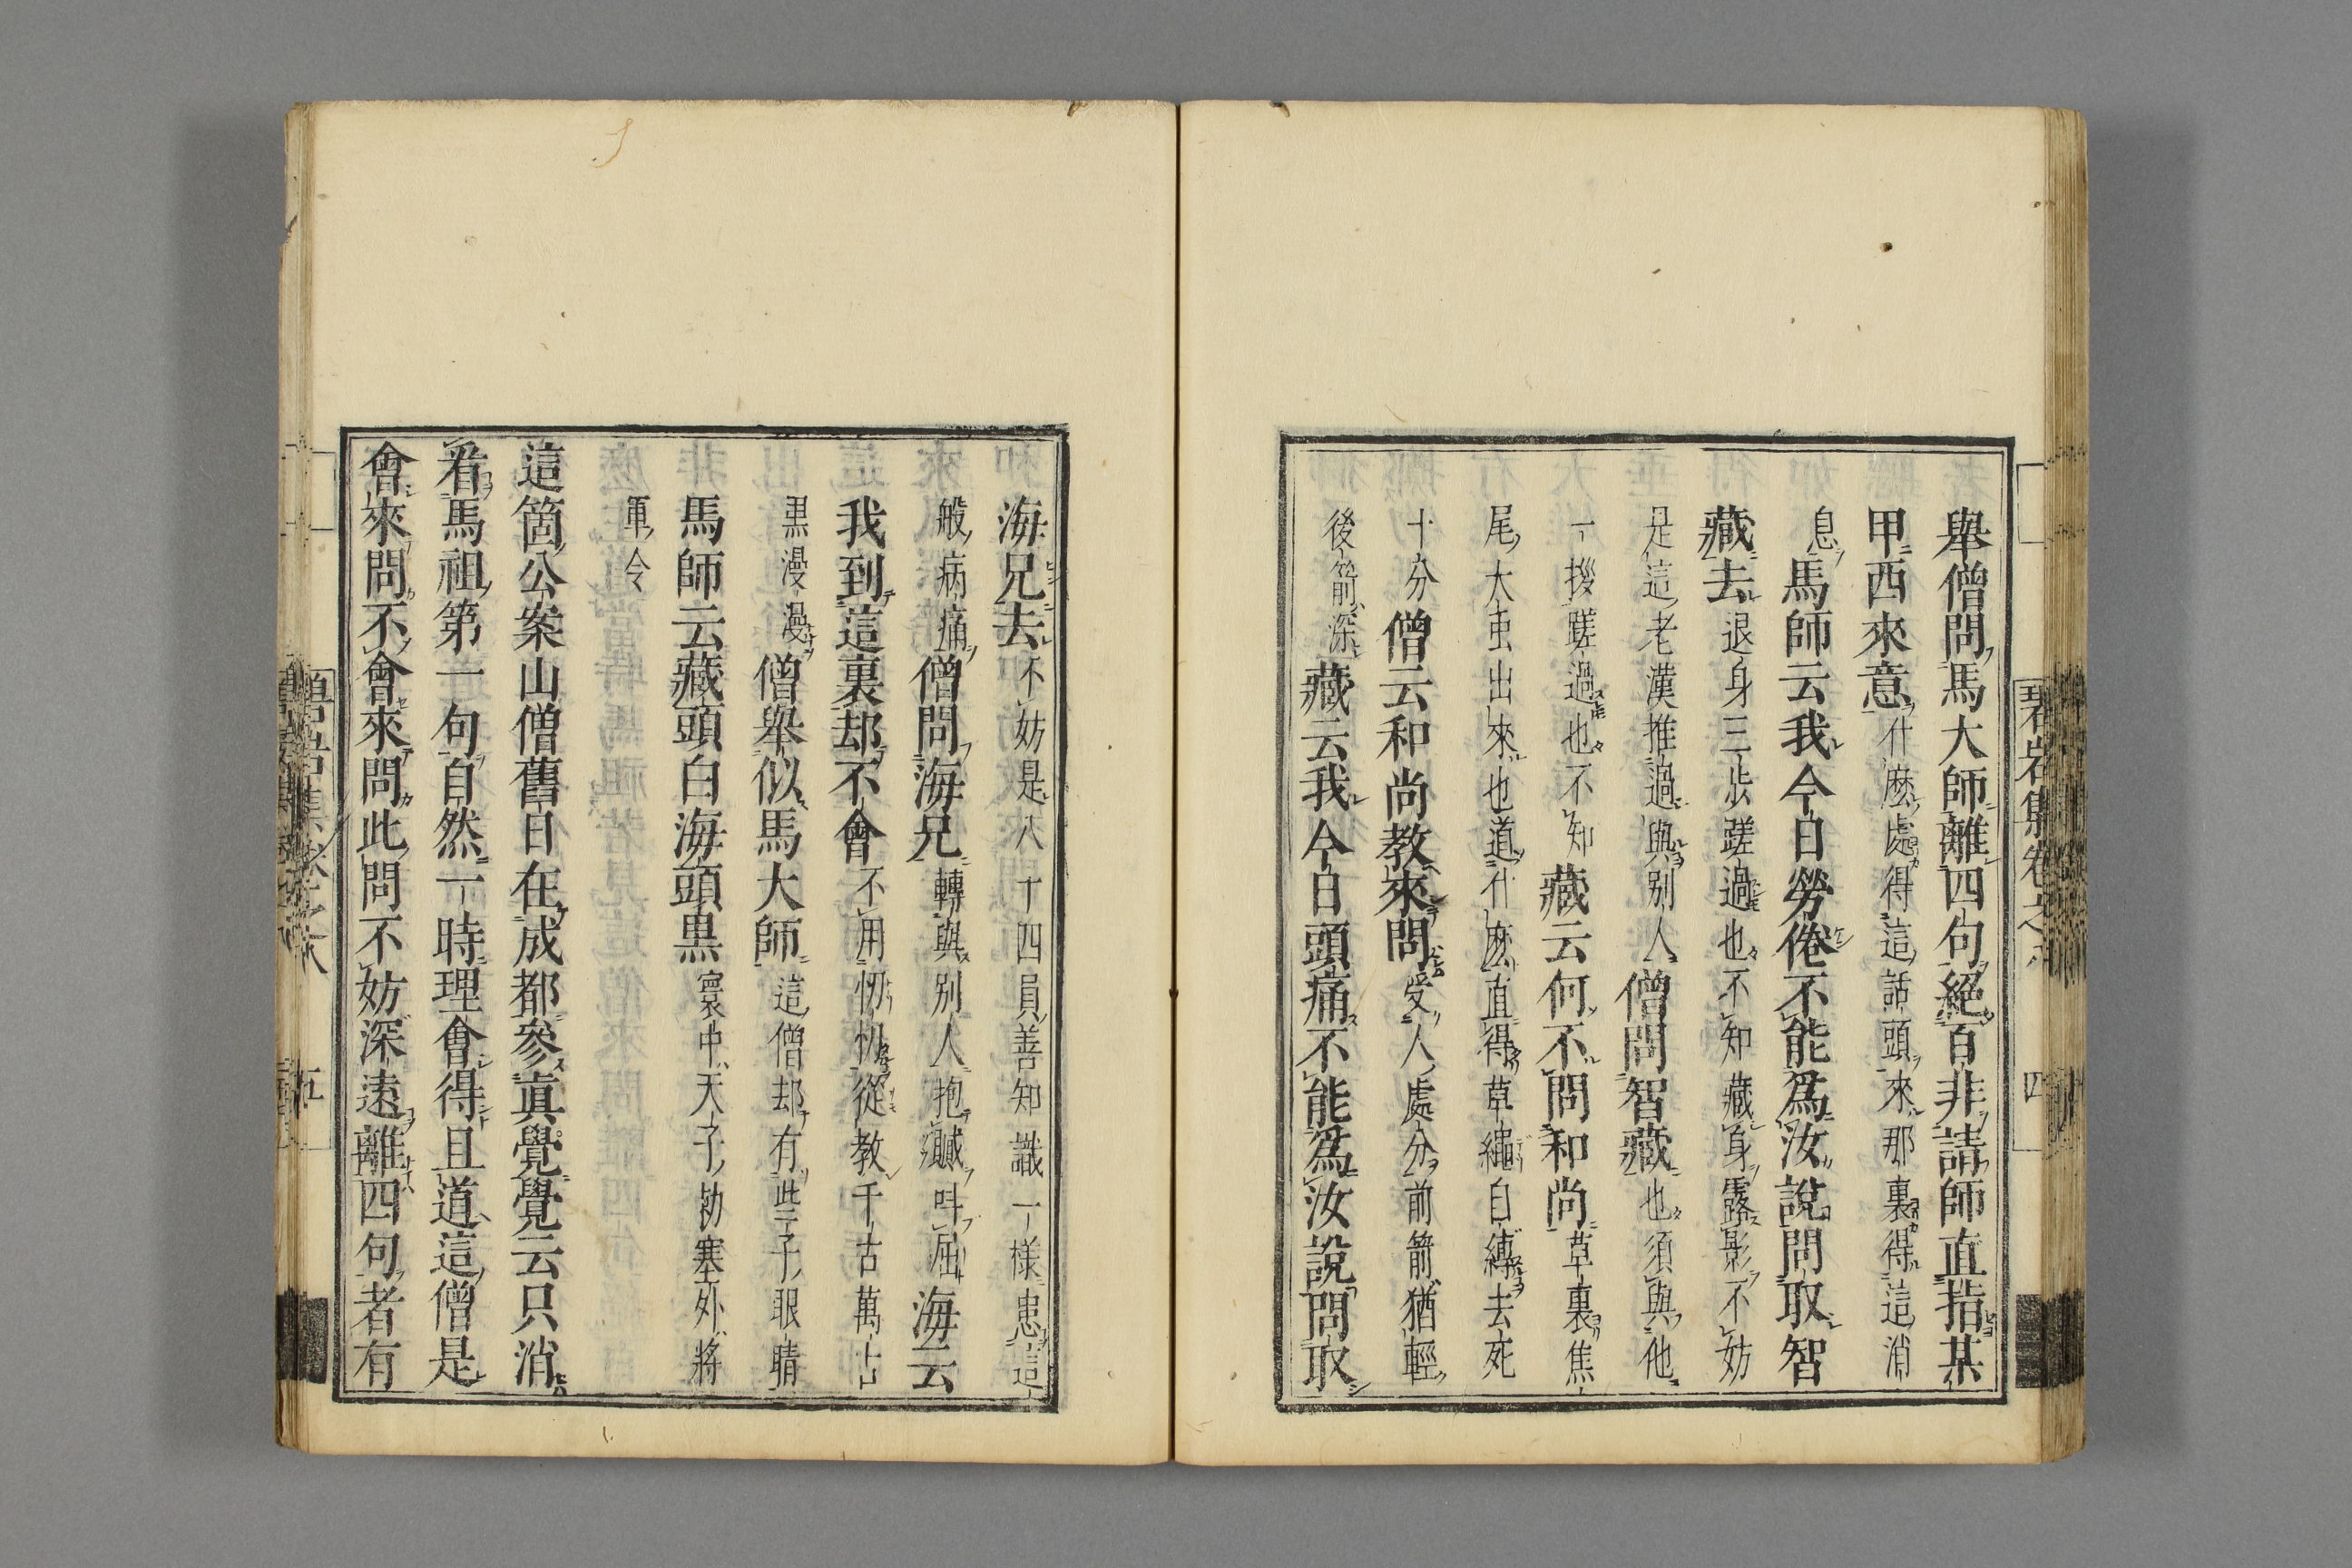 舉僧問馬大師離四句絕百非請師直指某
甲西來意什麽處得這話頭來那裏得這消
息馬師云我今日勞倦不能爲汝說問取智
藏去退身三步蹉過也不知藏身露影不妨
是這老漢推過與別人僧問智藏也須與他
一拶蹉過也不知藏云何不問和尚草裏焦
尾大虫出來也道什麽直得草繩自縛去死
十分僧云和尚教來問受人處分前箭猶輕
後箭深藏云我今日頭痛不能爲汝說問取
碧岩集卷之八
四
海兄去不妨是八十四員善知識一樣患這
般病痛僧問海兄轉與別人抱贓呌屈海云
我到這裏却不會不用忉忉從教千古萬古
黒漫漫僧舉似馬大師這僧却有些子眼睛
馬師云藏頭白海頭黒寰中天子勑塞外將
軍令
這箇公案山僧舊日在成都參眞覺覺云只消
看馬祖第一句自然一時理會得且道這僧是
會來問不會來問此問不妨深遠離四句者有
五